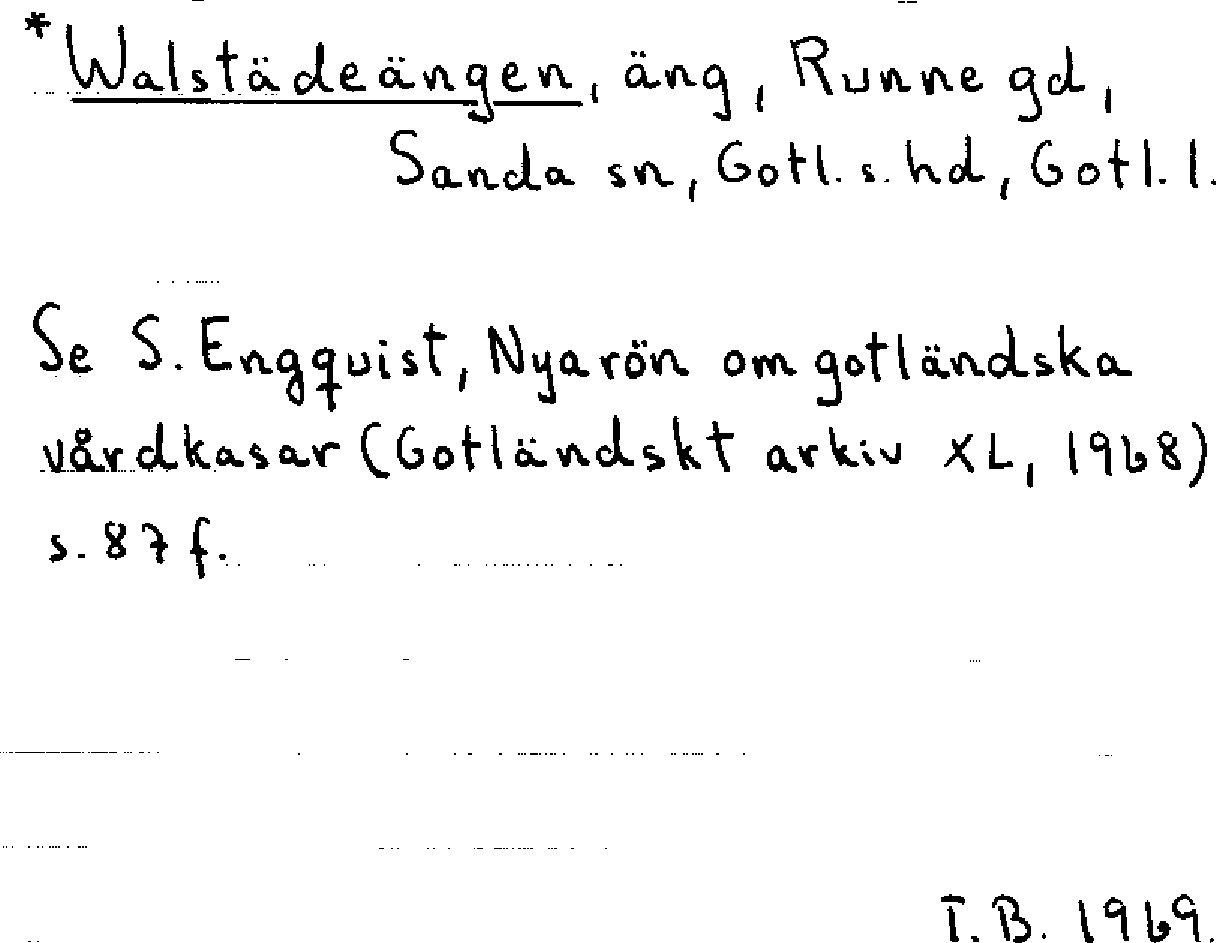 *Walstädeängen, äng, Runne gd,
Sanda sn, Gotl. s. hd, Gotl. l.
Se S. Engquist, Nyarön om gotländska
vårdkasar (Gotländskt arkiv XL, 1968)
s. 87 f.
T.B. 1969.